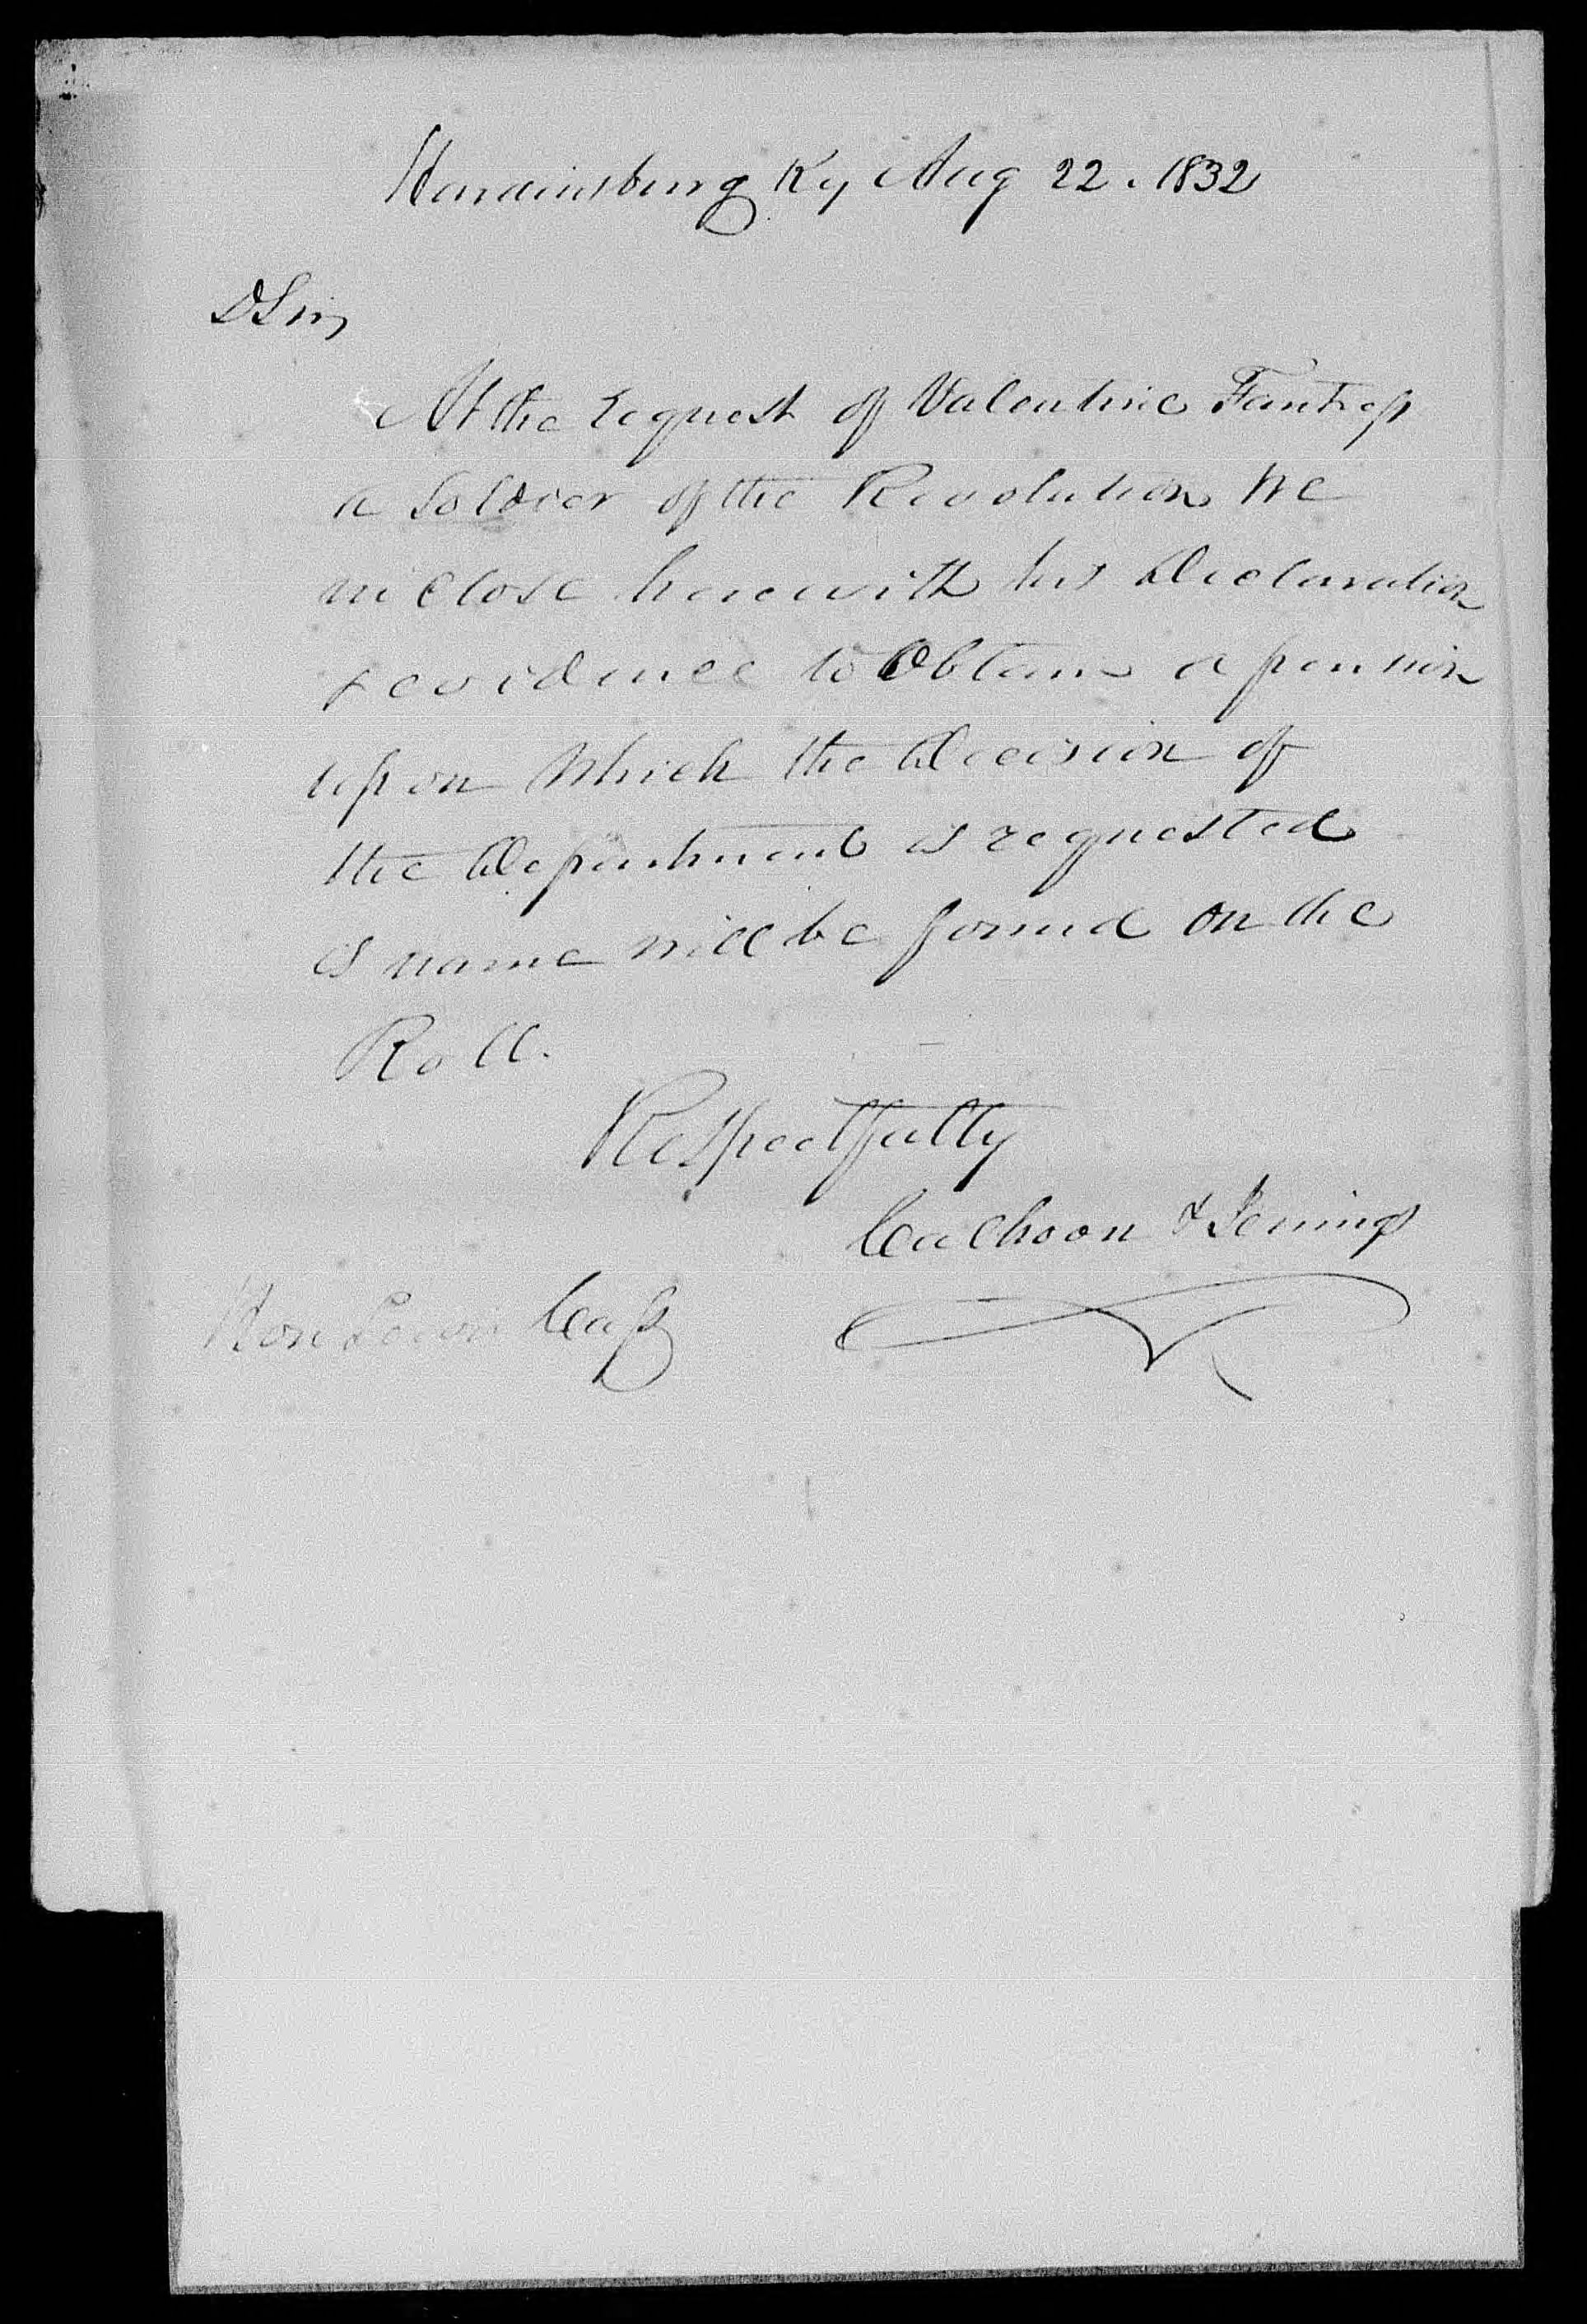 Hardinsburg Ky Aug 22. 1832
D Sir,
At the request of Valentine Fantress
a Soldier of the Revolution We
inclose herewith his Declaration
& evidence to Obtain a pension
upon Which the Decision of
the Department is requested
is name will be found on the
Roll.
Respectfully
Calhoon & Jennings
Hon Lewis Cass